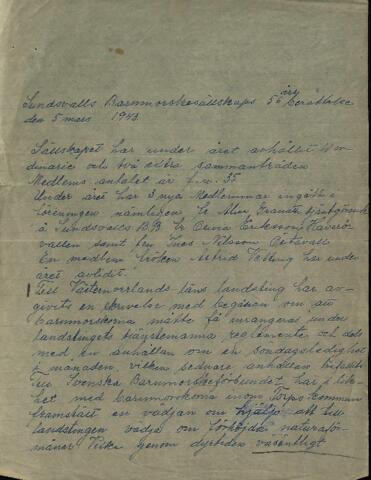 Sundsvalls Barnmorskesällskaps 56 års berättelse
den 5 mars 1943.
Sällskapet har under året avhållit 4
dinarie och två extra sammanträden
Medlems antalet är f.n. 35
Under året har 3 nya Medlemmar ingått i
föreningen nämligen
å Sundsvalls B.B. Eriksson
vallen samt fru Ines Nilsson
En medlem fröken Astrid har under
året avlidit.
Till Västernorrlands läns landsting har av-
givits en skrivelse med begäran om att
barnmorskorna måtte få inrangeras under
landstingets tjänstemanna reglemente och dels
med en anhållan om en söndagsledighet
i månaden, vilken senare anhållan
Till Svenska Barnmorskeförbundet har i lik-
het med barnmorskorna inom Torps kommun
framställt en vädjan om hjälp att till
landstingen vädja om förhöjda naturaför-
måner vilka genom dyrtiden väsentligt